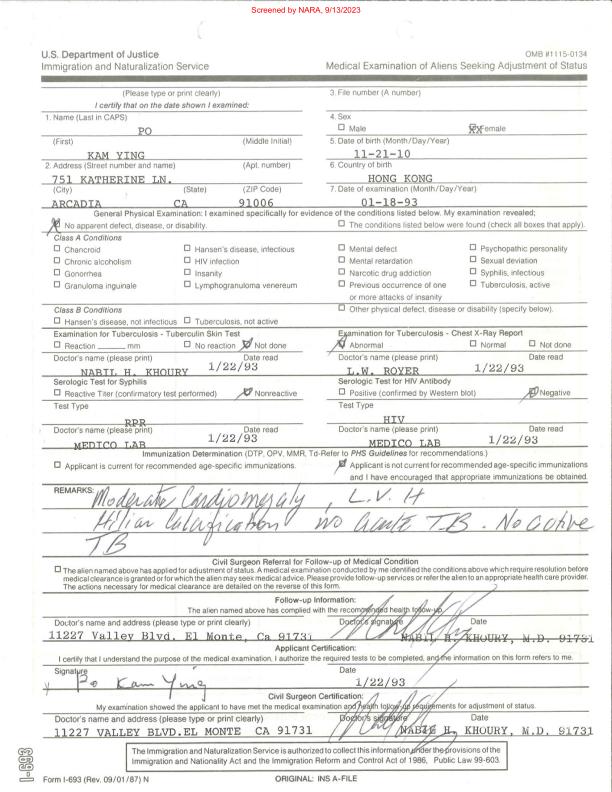 Screened by NARA, 9/13/2023
U.S. Department of Justice
Immigration and Naturalization Service
OMB #1115-0134
Medical Examination of Aliens Seeking Adjustment of Status
(Please type or print clearly)
I certify that on the date shown I examined:
3. File number (A number)
1. Name (Last in CAPS)
PO
4. Sex
Male
Female
(First) (Middle Initial)
KAM YING
5. Date of birth (Month/Day/Year)
11-21-10
2. Address (Street number and name) (Apt. number)
751 KATHERINE LN.
6. Country of birth
HONG KONG
(City) (State) (ZIP Code)
ARCADIA CA 91006
7. Date of examination (Month/Day/Year)
01-18-93
General Physical Examination: I examined specifically for evidence of the conditions listed below. My examination revealed;
No apparent defect, disease, or disability.
The conditions listed below were found (check all boxes that apply).
Class A Conditions
Chancroid
Chronic alcoholism
Gonorrhea
Granuloma inguinale
Hansen's disease, infectious
HIV infection
Insanity
Lymphogranuloma venereum
Mental defect
Mental retardation
Narcotic drug addiction
Previous occurrence of one
or more attacks of insanity
Psychopathic personality
Sexual deviation
Syphilis, infectious
Tuberculosis, active
Class B Conditions
Hansen's disease, not infectious
Tuberculosis, not active
Other physical defect, disease or disability (specify below).
Examination for Tuberculosis - Tuberculin Skin Test
Reaction ______ mm
No reaction
Not done
Doctor's name (please print) Date read
NABIL H. KHOURY 1/22/93
Examination for Tuberculosis - Chest X-Ray Report
Abnormal
Normal
Not done
Doctor's name (please print) Date read
L.W. ROYER 1/22/93
Serologic Test for Syphilis
Reactive Titer (confirmatory test performed)
Nonreactive
Test Type
RPR
Doctor's name (please print) Date read
MEDICO LAB 1/22/93
Serologic Test for HIV Antibody
Positive (confirmed by Western blot)
Negative
Test Type
HIV
Doctor's name (please print) Date read
MEDICO LAB 1/22/93
Immunization Determination (DTP, OPV, MMR, Td-Refer to PHS Guidelines for recommendations.)
Applicant is current for recommended age-specific immunizations.
Applicant is not current for recommended age-specific immunizations
and I have encouraged that appropriate immunizations be obtained.
REMARKS: Moderate Cardiomegaly, L.V.H
Hiliar Calcification no acute T.B. No active
TB
Civil Surgeon Referral for Follow-up of Medical Condition
The alien named above has applied for adjustment of status. A medical examination conducted by me identified the conditions above which require resolution before
medical clearance is granted or for which the alien may seek medical advice. Please provide follow-up services or refer the alien to an appropriate health care provider.
The actions necessary for medical clearance are detailed on the reverse of this form.
Follow-up Information:
The alien named above has complied with the recommended health follow-up.
Doctor's name and address (please type or print clearly) Doctor's signature Date
11227 Valley Blvd. El Monte, Ca 91731 NABIL H. KHOURY, M.D. 91731
Applicant Certification:
I certify that I understand the purpose of the medical examination, I authorize the required tests to be completed, and the information on this form refers to me.
Signature Date
Po Kam Ying 1/22/93
Civil Surgeon Certification:
My examination showed the applicant to have met the medical examination and health follow-up requirements for adjustment of status.
Doctor's name and address (please type or print clearly) Doctor's signature Date
11227 VALLEY BLVD.EL MONTE CA 91731 NABIL H. KHOURY, M.D. 91731
The Immigration and Naturalization Service is authorized to collect this information under the provisions of the
Immigration and Nationality Act and the Immigration Reform and Control Act of 1986, Public Law 99-603.
I-693
Form I-693 (Rev. 09/01/87) N
ORIGINAL: INS A-FILE